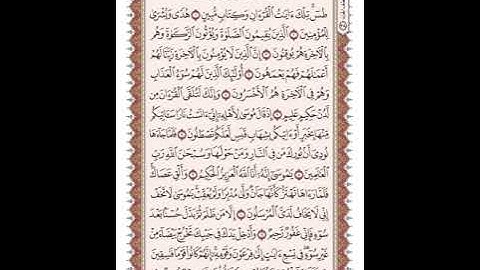 طسٓ تِلْكَ ءَايَٰتُ ٱلْقُرْءَانِ وَكِتَابٍ مُّبِينٍ ۝ هُدًى وَبُشْرَىٰ
لِلْمُؤْمِنِينَ ۝ ٱلَّذِينَ يُقِيمُونَ ٱلصَّلَوٰةَ وَيُؤْتُونَ ٱلزَّكَوٰةَ وَهُم
بِٱلْءَاخِرَةِ هُمْ يُوقِنُونَ ۝ إِنَّ ٱلَّذِينَ لَا يُؤْمِنُونَ بِٱلْءَاخِرَةِ زَيَّنَّا لَهُمْ
أَعْمَٰلَهُمْ فَهُمْ يَعْمَهُونَ ۝ أُوْلَٰٓئِكَ ٱلَّذِينَ لَهُمْ سُوٓءُ ٱلْعَذَابِ
وَهُمْ فِى ٱلْءَاخِرَةِ هُمُ ٱلْأَخْسَرُونَ ۝ وَإِنَّكَ لَتُلَقَّى ٱلْقُرْءَانَ مِن
لَّدُنْ حَكِيمٍ عَلِيمٍ ۝ إِذْ قَالَ مُوسَىٰ لِأَهْلِهِۦٓ إِنِّىٓ ءَانَسْتُ نَارًا سَـَٔاتِيكُم
مِّنْهَا بِخَبَرٍ أَوْ ءَاتِيكُم بِشِهَابٍ قَبَسٍ لَّعَلَّكُمْ تَصْطَلُونَ ۝ فَلَمَّا جَآءَهَا
نُودِىَ أَنۢ بُورِكَ مَن فِى ٱلنَّارِ وَمَنْ حَوْلَهَا وَسُبْحَٰنَ ٱللَّهِ رَبِّ
ٱلْعَٰلَمِينَ ۝ يَٰمُوسَىٰٓ إِنَّهُۥٓ أَنَا ٱللَّهُ ٱلْعَزِيزُ ٱلْحَكِيمُ ۝ وَأَلْقِ عَصَاكَ
فَلَمَّا رَءَاهَا تَهْتَزُّ كَأَنَّهَا جَآنٌّ وَلَّىٰ مُدْبِرًا وَلَمْ يُعَقِّبْ يَٰمُوسَىٰ لَا تَخَفْ
إِنِّى لَا يَخَافُ لَدَىَّ ٱلْمُرْسَلُونَ ۝ إِلَّا مَن ظَلَمَ ثُمَّ بَدَّلَ حُسْنًۢا بَعْدَ
سُوٓءٍ فَإِنِّى غَفُورٌ رَّحِيمٌ ۝ وَأَدْخِلْ يَدَكَ فِى جَيْبِكَ تَخْرُجْ بَيْضَآءَ مِنْ
غَيْرِ سُوٓءٍ فِى تِسْعِ ءَايَٰتٍ إِلَىٰ فِرْعَوْنَ وَقَوْمِهِۦٓ إِنَّهُمْ كَانُوا۟ قَوْمًا فَٰسِقِينَ